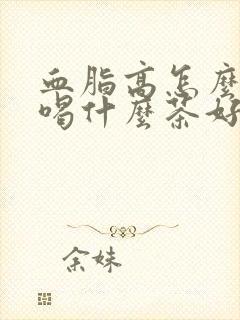 血脂高怎麼
喝什麼茶好
余妹